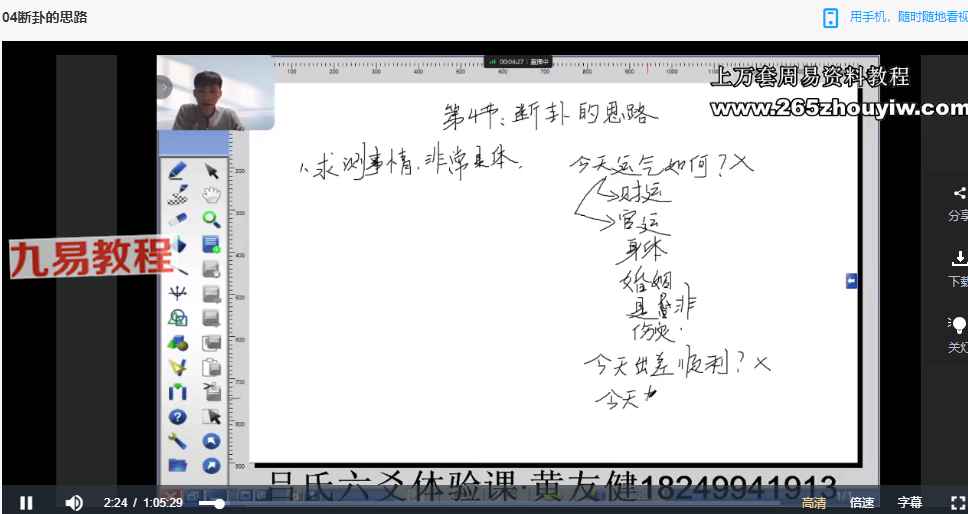 04断卦的思路
用手机，随时随地看视
00:04:27
直播中
上万套周易资料教程
www.265zhouyiw.com
第4节:断卦的思路
1、求测事情,非常具体.
今天运气如何?X
财运
官运
身体
婚姻
是 非
伤灾.
今天出差顺利?X
今天
九易教程
分享
下载
关灯
吕氏六爻体验课·黄友健18249941913
2:24 / 1:05:29
高清
倍速
字幕